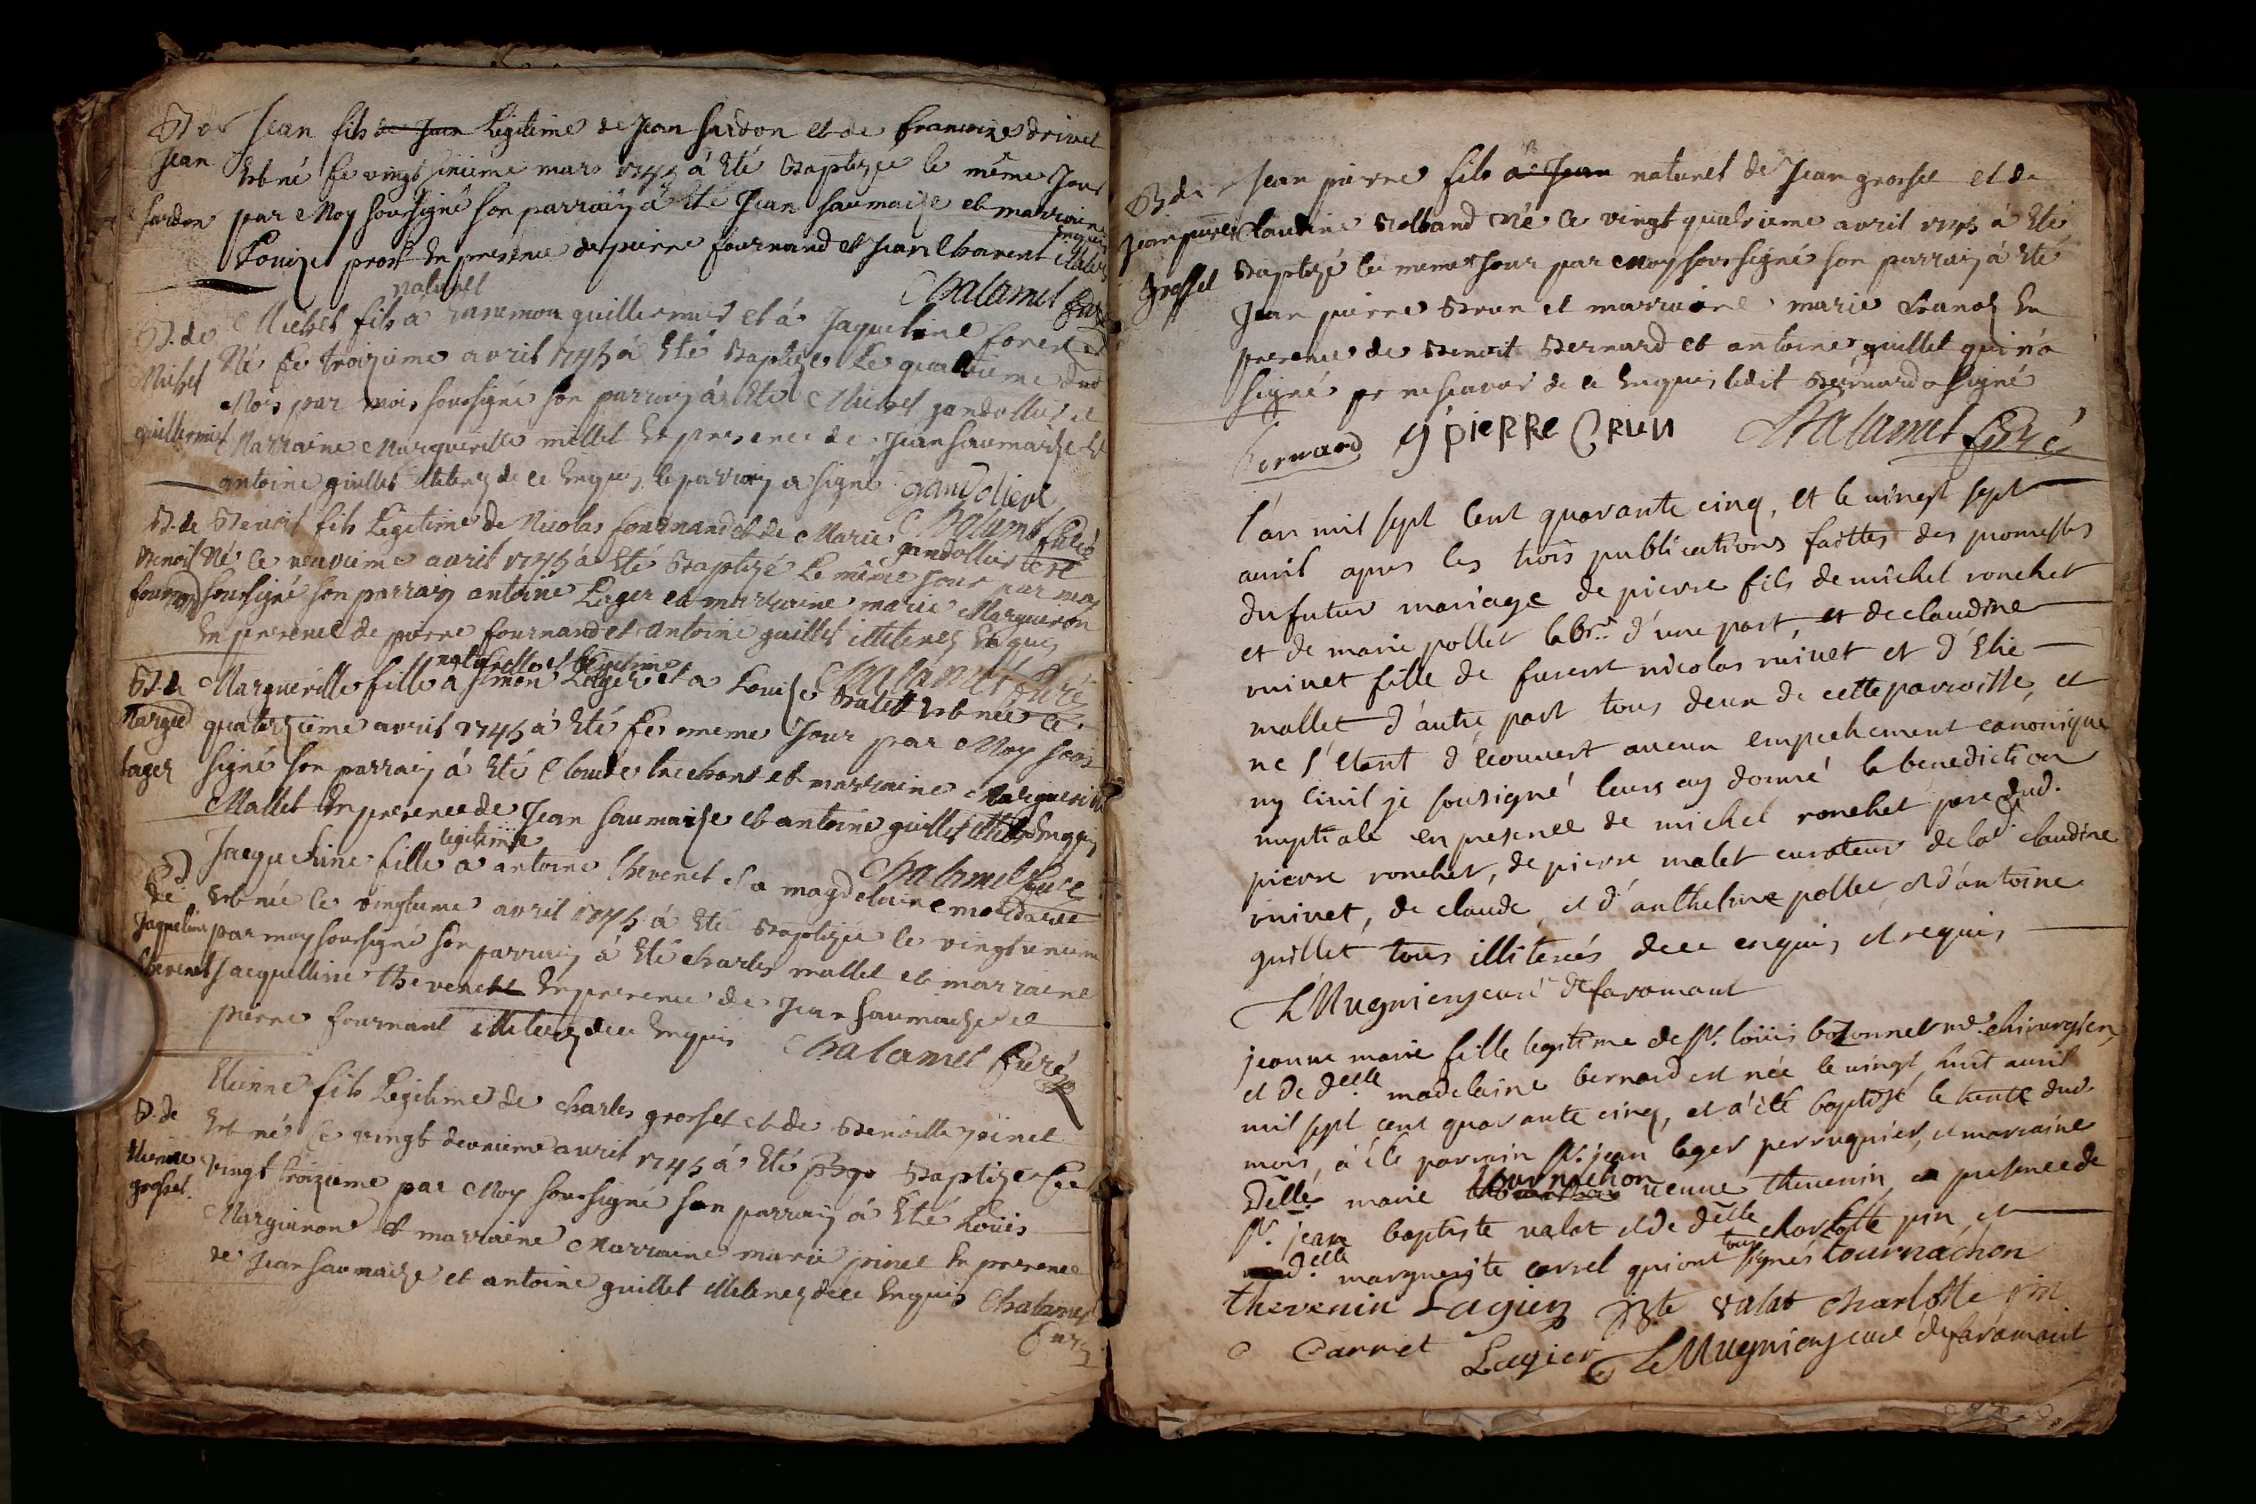 B. de Jean fils de Jean Legitime de Jean Sardon et de francoise drivet
Jean Est né le vingt sixieme mars 1745 à Eté Baptizée le même Jour
Sardon par Moy soussigné son parrain à Eté Jean Saumaize et marraine
Louize prost En presence de pierre fournand et Jean Charent
Chalamel Curé
naturel
B. de Michel fils à guillermis et à Jaqueline
Né le troizieme avril 1745 à Eté Baptize Le quatrieme dud
Michel Mois par mois soussigné son parrain à Eté Michel gandollier et
guillermis Marraine Margueritte millet En presence de Jean Saumaize Et
antoine guillet illiterez de ce Enquis le parrain a signé gandoliere
Chalamel Curé
B. de Benoit fils Legitime de Nicolas fournand et de Marie gandollier est
Benoit Né le neuvieme avril 1745 à Eté Baptizé Le même Jour par moy
fournand soussigné son parrain antoine Lager et marraine marie Marguiron
En presence de pierre fournand et antoine guillet illiterez Enquis
Chalamel Curé
naturelle et legitime
B. de Marguerille fille à simon Lager et a Louize Est née le
Margue quatorzieme avril 1745 à Eté le meme Jour par Moy sous
Lager signé son parrain à Eté Claude et marraine Marguerite
Mallet En presence de Jean Saumaize et antoine guillet Enquis
legitime
B Jacqueline fille a antoine thevenet et a magdelaine
Chalamel Curé
de Est née le vingtieme avril 1745 à Eté Baptizée le vingtunieme
Jaqueline par moy soussigné son parrain à Eté charles mallet et marraine
thevenet Jacqueline thevenet En presence de Jean Saumaize et
pierre fournand illiterez de ce Enquis Chalamel Curé
Etienne fils Legitime de Charles grosset et de Benoitte joinet
B. de Est né le vingt deuxieme avril 1745 à Eté Baptize Le
Etienne vingt troizieme par Moy soussigné son parrain à Eté Loüis
grosset. Marguiron et marraine Marraine marie En presence
de Jean Saumaize et antoine guillet illiterez de ce Enquis Chalamel
Curé
B. de Jean pierre fils à Jean naturel de Jean grosset et de
Jean pierre Claudine Rolland Né le vingt quatrieme avril 1745 à Eté
Grosset Baptizé le meme Jour par Moy soussigné son parrain à Eté
Jean pierre Brun et marraine marie En
presence de Benoit Bernard et antoine guillet qui n'a
signé pr ne scavoir de ce Enquis ledit Bernard a signé
Bernard PIERRE BRUN Chalamel Curé
l'an mil sept Cent quarante cinq, et le vingt sept
avril apres les trois publications faittes des promesses
du futur mariage de pierre fils de michel ronchet
et de marie pollet labr.r d'une part, et de claudine
vuivet fille de furent nicolas vuivet et d'Elie
mallet d'autre part tous deux de cette parroisse, et
ne s'etant découvert aucun empechement canonique
ny Civil je sousigné leurs ay donné la benediction
nuptiale en presence de michel ronchet pere dud.
pierre ronchet, de pierre malet curateur de lad. claudine
vuivet, de claude et d'anthelme pollet et d'antoine
guillet tous illiterés de ce enquis et requis
LMugnier curé de faramant
jeanne marie fille legitime de Sr. loüis bozonnet me. chirurgien,
et de delle madelaine bernard est née le vingt, huit avril
mil sept cent quarante cinq, et a été baptisé le trente dud.
mois, à été parrain Sr. jean lager perruquier, et marraine
Delle marie tournachon veuve thevenin, en presence de
Sr. jean baptiste valat et de delle charlotte pin et
delle marguerite carret qui ont tous signés tournachon
thevenin Lagier jB.te valat charlotte pin
Carret Lagier LMugnier curé de faramant